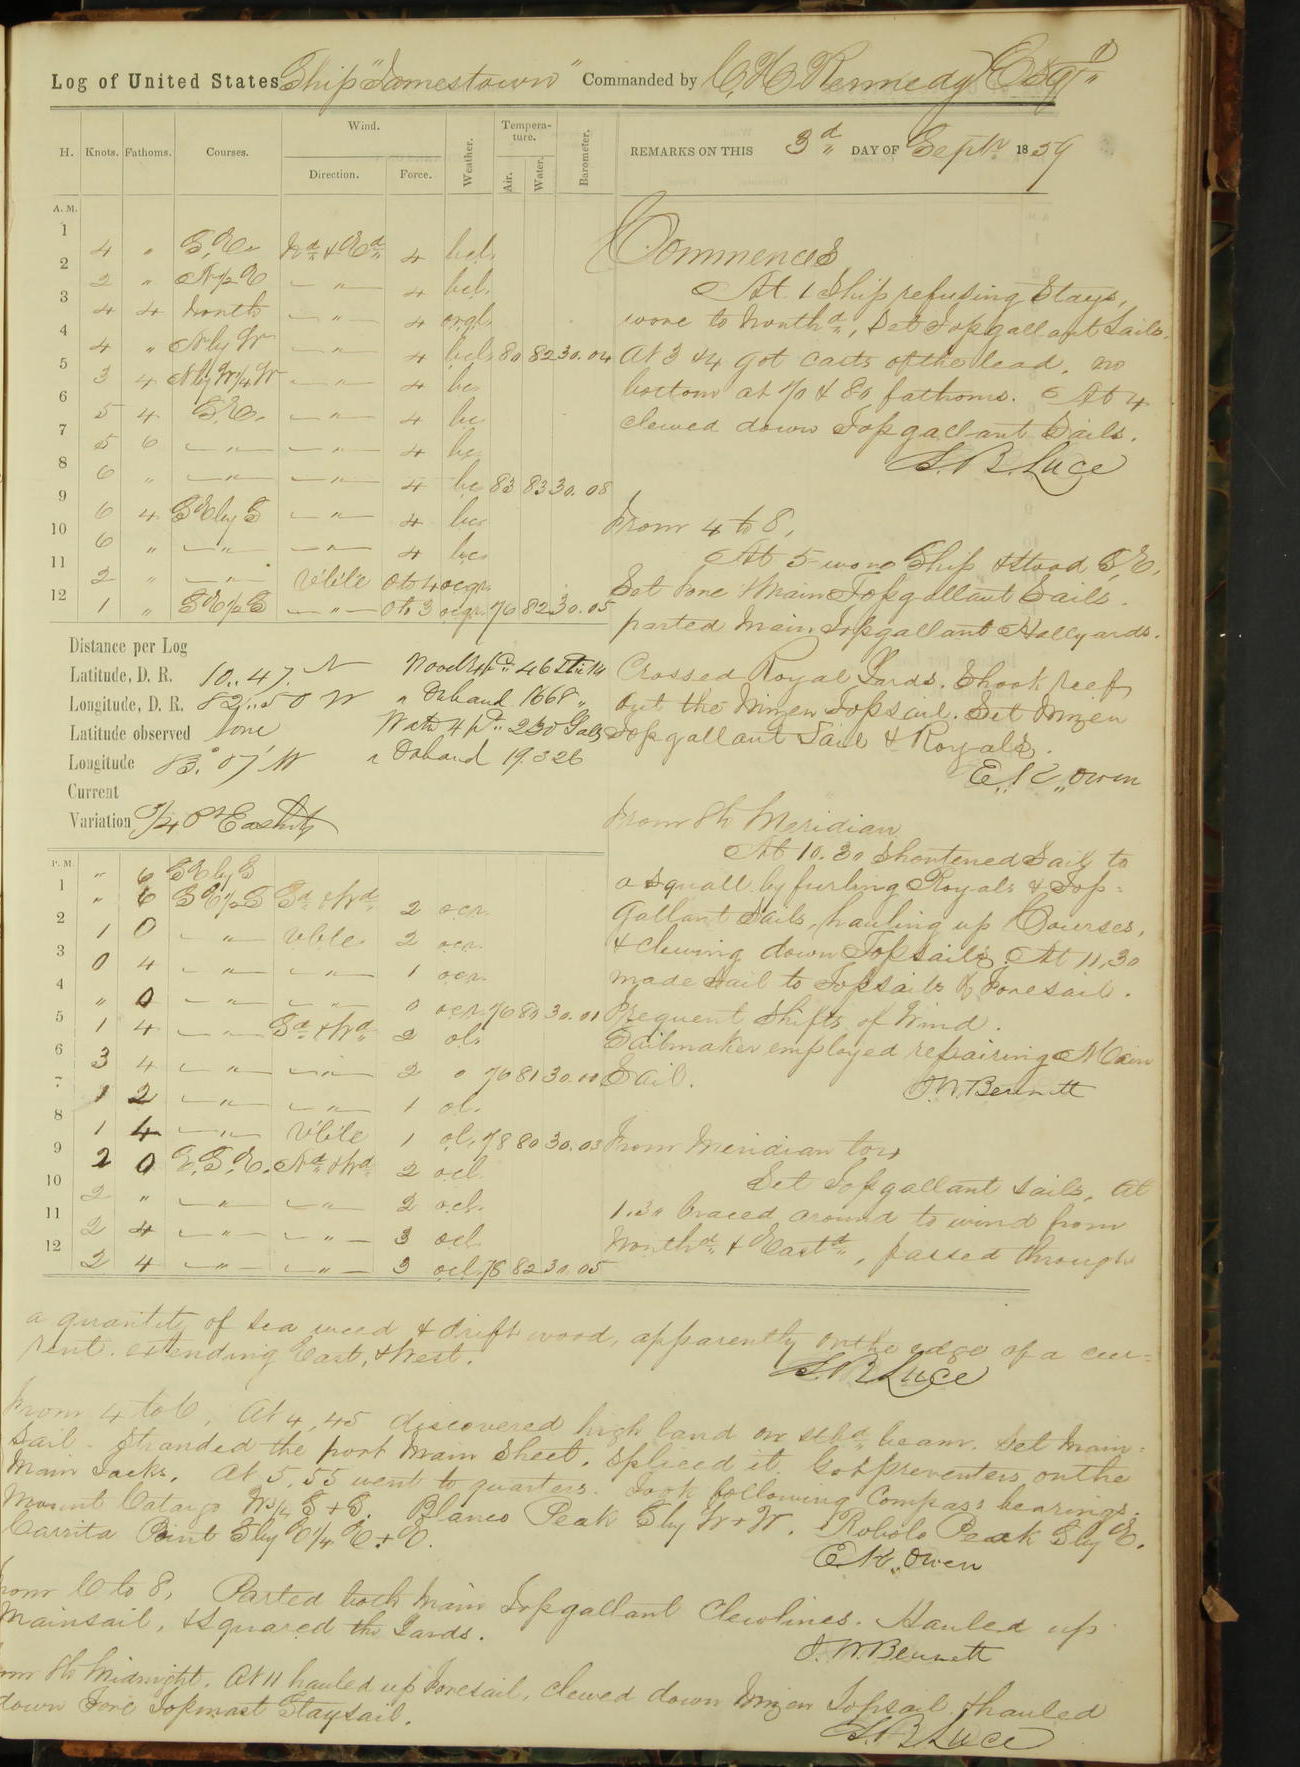 Log of United States Ship "Jamestown" Commanded by C. H. Kennedy Esqr
H. Knots. Fathoms. Courses. Wind. Direction. Force. Weather. Tempera-ture. Air. Water. Barometer. REMARKS ON THIS 3d DAY OF Septr 1859
A. M.
1 4 " S.E. Nd & Ed 4 bcl.
2 2 " N 1/2 E — " — 4 bcl.
3 4 4 North — " — 4 orql.
4 4 " N by W — " — 4 bcl. 80 82 30.04
5 3 4 N by W 1/4 W — " — 4 bc
6 5 4 S.E. — " — 4 bc
7 5 6 — " — — " — 4 bc
8 6 " — " — — " — 4 bc 83 83 30.08
9 6 4 SE by S — " — 4 bc
10 6 " — " — — " — 4 bc
11 2 " — " — V'b'le 0 to 4 ocqr
12 1 " SE 1/2 S — " — 0 to 3 ocqr 76 82 30.05
Commences
At 1 Ship refusing Stays,
wore to Northd, Set Topgallant Sails.
At 3 & 4 got casts of the lead, no
bottom at 70 & 80 fathoms. At 4
clewed down Topgallant Sails.
S. B. Luce
From 4 to 8,
At 5 wore Ship & stood S,E,
Set Fore & Main Topgallant Sails.
parted Main Topgallant Hallyards.
Crossed Royal Yards. Shook reef
out the Mizen Topsail. Set Mizen
Topgallant Sail & Royals.
E. K. Owen
From 8 to Meridian
At 10.30 Shortened Sail to
a Squall by furling Royals & Top=
gallant Sails, hauling up Courses,
& clewing down Topsails. At 11,30
made sail to Topsails & Foresail.
Frequent Shifts of Wind.
Sailmaker employed repairing Main
Sail.
J. W. Bennett
Distance per Log
Latitude, D. R. 10.. 47. N
Longitude, D. R. 82..50 W " On hand 1668 "
Latitude observed None Watr 4 pd " 230 Galls
Longitude 83.° 07,' W " On hand 19.326
Current
Variation 3/4 Pt Eastly
P. M.
" 6 SE by S
1 " 6 SE 1/2 S Sd & Wd 2 ocr.
2 1 0 — " — Vble 2 ocr.
3 0 4 — " — — " — 1 ocr.
4 " 0 — " — — " — 0 ocr. 76 80 30.01
5 1 4 — " — Sd & Wd 2 ol.
6 3 4 — " — — " — 2 o 76 81 30.00
7 1 2 — " — — " — 1 ol.
8 1 4 — " — V'b'le 1 ol. 78 80 30.03
9 2 0 E.S.E. Nd & Wd 2 ocl.
10 2 " — " — — " — 2 ocl.
11 2 4 — " — — " — 3 ocl
12 2 4 — " — — " — 3 ocl. 78 82 30.05
From Meridian to 4
Set Topgallant sails, At
1.30 braced around to wind from
Northd & Eastd, passed through
a quantity of sea weed & drift wood, apparently on the edge of a cur=
rent. extending East, & West.
S. B. Luce
From 4 to 6, At 4,45 discovered high land on beam. Set Main=
sail. Stranded the port Main Sheet. Spliced it. Got preventers on the
Main Tacks. At 5,55 went to quarters. Took following Compass bearings.
Mount Catargo W 3/4 S + S. Blanco Peak S by W + W. Robolo Peak S by E.
Carrita Point S by E 1/4 E + E.
E K. Owen
From 6 to 8, Parted both Main Topgallant Clewlines. Hauled up
Mainsail, & Squared the Yards.
J. W. Bennett
From 8 to Midnight. At 11 hauled up Foresail, clewed down Mizen Topsail & hauled
down Fore Topmast Staysail.
S. B. Luce